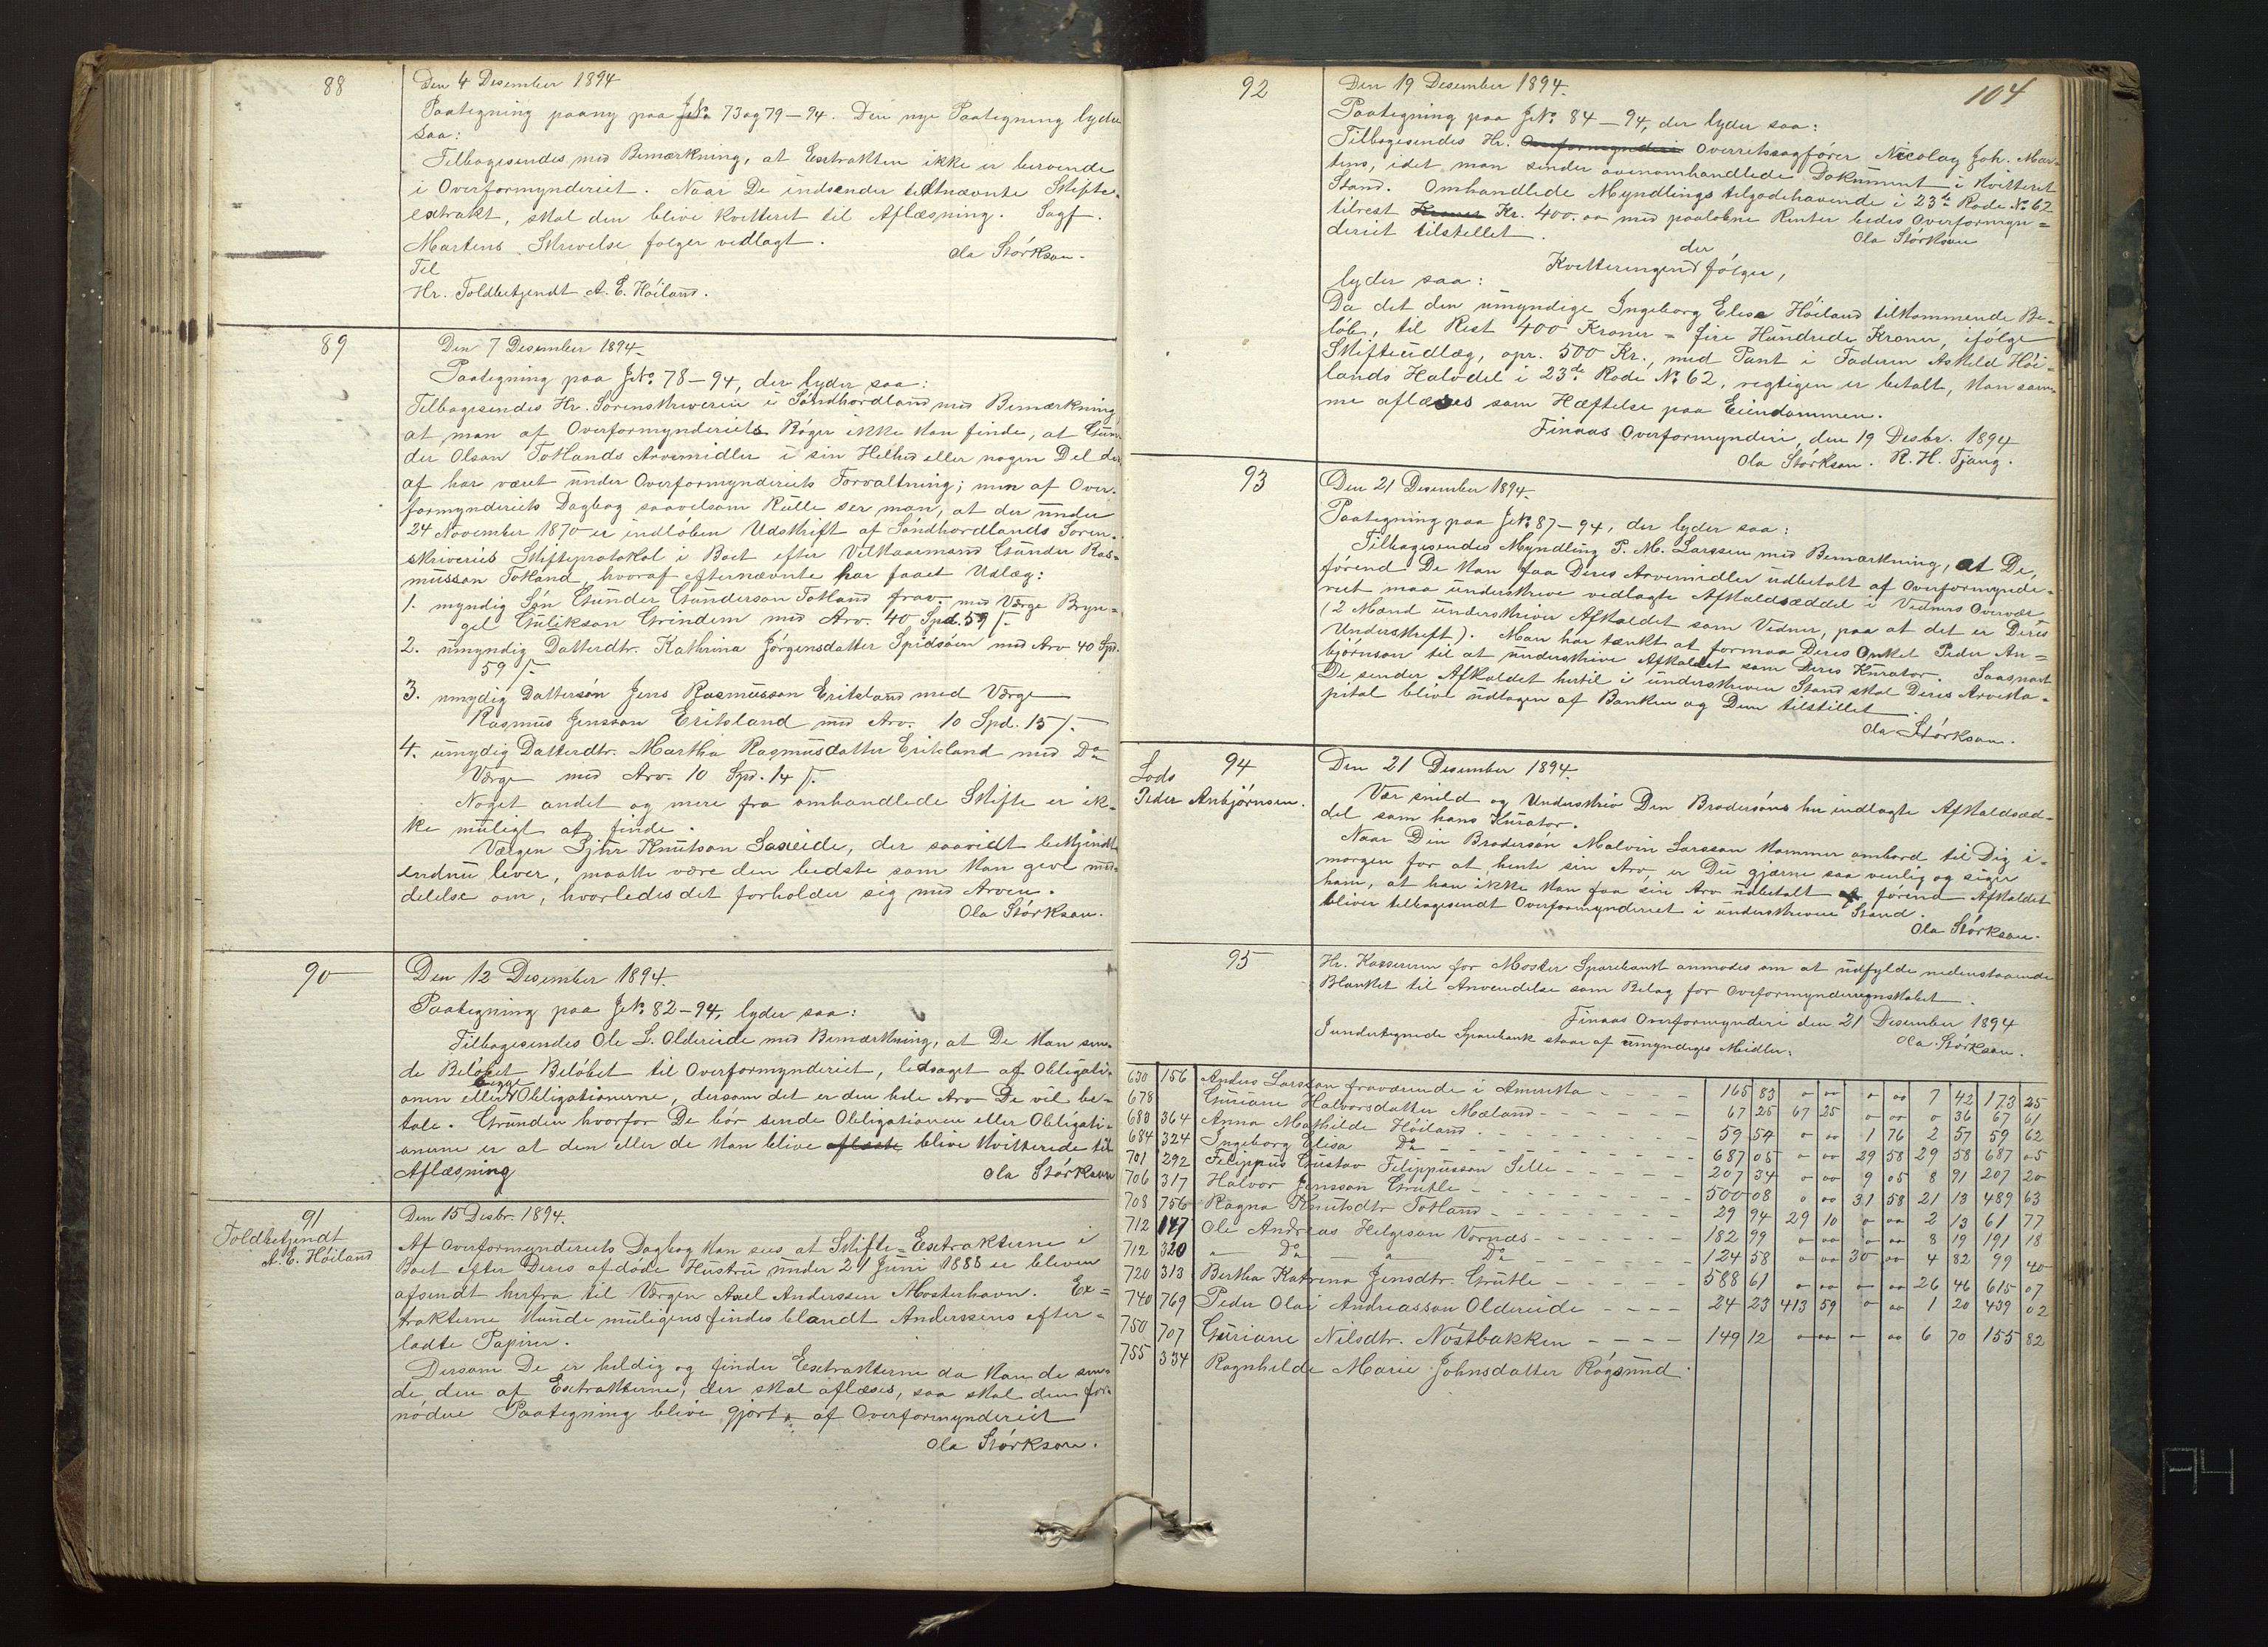 88
Den 4 Desember 1894
Paategning paany paa JNo 73 og 79 — 94. Den nye Paategning lyder
saa:
Tilbagesendes med Bemærkning, at Extrakten ikke er beroende
i Overformynderiet. Naar De indsender  Skifte-
extrakt, skal den blive kvitteret til Aflæsning. Sagf.
Martens Skrivelse følger vedlagt.
Ola Störkson.
Til
Hr. Toldbetjendt A. E. Höiland.
89
Den 7 Desember 1894.
Paategning paa JNo. 78 — 94, der lyder saa:
Tilbagesendes Hr. Sorenskriveren i Söndhordland med Bemærkning
at man af Overformynderiets Böger ikke kan finde, at Gun-
der Olson Totlands Arvemidler i sin Helhed eller nogen Del der
af har været under Overformynderiets Forvaltning; men af Over-
formynderiets Dagbog saavelsom Rulle ser man, at der under
24 November 1870 er indløben Udskrift af Söndhordlands Soren-
skriveris Skifteprotokol i Boet efter Vilkaarmand Gunder Ras-
musson Totland, hvoraf efternævnte har faaet Udlæg:
1. myndig Sön Gunder Gunderson Totland frav. med Værge Bryn-
gel Gulikson Grindem med Arv. 40 Spd. 59 /-
2. umyndig Datterdtr. Kathrina Jörgensdatter Spidsöen med Arv 40 Spd.
59 /-
3. umydig Dattersön Jens Rasmusson Eritsland med Værge
Rasmus Jensson Eritsland med Arv. 10 Spd. 15 /-.
4. umydig Datterdtr. Martha Rasmusdatter Eritsland med Do
Værge med Arv. 10 Spd. 14 /-.
Noget andet og mere fra omhandlede Skifte er ik-
ke muligt at finde.
Værgen Sjur Knutson Saxeide, der saavidt bekjendt
endnu lever, maatte være den bedste som kan give med-
delelse om, hvorledes det forholder sig med Arven.
Ola Störkson.
90
Den 12 Desember 1894.
Paategning paa JNo. 82 — 94, lyder saa:
Tilbagesendes Ole L. Oldereide med Bemærkning, at De kan sen-
de Belöbet Belöbet til Overformynderiet, ledsaget af Obligati-
onen eller begge Obligationerne, dersom det er den hele Arv De vil be-
tale. Grunden hvorfor De bör sende Obligationen eller Obligati-
onerne er at den eller de kan blive aflæste blive kvitterede til
Aflæsning
Ola Störkson
91
Toldbetjendt
A. E. Höiland
Den 15 Desbr. 1894.
Af Overformynderiets Dagbog kan sees at Skifte-Extrakterne i
Boet efter Deres afdøde Hustru under 21 Juni 1888 er bleven
afsendt herfra til Værgen Axel Anderssen Mosterhavn. Ex-
trakterne kunde muligens findes blandt Anderssens efter-
ladte Papirer.
Dersom De er heldig og finder Extrakterne da kan de sen-
de den af Extrakterne, der skal aflæses, saa skal den for-
nödne Paategning blive gjort af Overformynderiet
Ola Störkson.
104
92
Den 19 Desember 1894.
Paategning paa JNo. 84 — 94, der lyder saa:
Tilbagesendes Hr. Overformynderi Overretssagförer Nicolay Joh. Mar-
tens, idet man sender ovenomhandlede Dokument i kvitteret
Stand. Omhandlede Myndlings tilgodehavende i 23de Rode No 62
tilrest Kroner Kr. 400.00 med paalobne Renter bedes Overformyn-
deriet tilstillet.
Ola Störkson
Kvitteringen der fölger,
lyder saa:
Da det den umyndige Ingeborg Elisa Höiland tilkommende Be-
löb, til Rest 400 Kroner = fire Hundrede Kroner, ifölge
Skifteudlæg, opr. 500 Kr., med Pant i Faderen Askild Höi-
lands Halvdel i 23de Rode No 62, rigtigen er betalt, kan sam-
me aflæses som Hæftelse paa Eiendommen.
Finaas Overformynderi, den 19 Desbr. 1894
Ola Störkson. R. H. Tjang.
93
Den 21 Desember 1894.
Paategning paa JNo. 87 — 94, der lyder saa:
Tilbagesendes Myndling P. M. Larssen med Bemærkning, at De,
förend De kan faa Deres Arvemidler udbetalt af Overformynde-
riet maa underskrive vedlagte Afkaldsæddel i Vidners Overvær
(2 Mænd underskriver Afkaldet som Vidner, paa at det er Deres
Underskrift). Man har tænkt at formaa Deres Onkel Peder An-
björnson til at underskrive Afkaldet som Deres Kurator. Saasnart
De sender Afkaldet hertil i underskreven Stand skal Deres Arveka-
pital blive udtagen af Banken og Dem tilstillet.
Ola Störkson.
94
Lods
Peder Anbjörnsen.
Den 21 Desember 1894.
Vær snild og Underskriv Din Brodersöns her indlagte Afkaldsæd-
del som hans Kurator.
Naar Din Brodersön Malvin Larsson kommer ombord til Dig i-
morgen for at hente sin Arv, er Du gjærne saa venlig og siger
ham, at han ikke kan faa sin Arv udbetalt förend Afkaldet
bliver tilbagesendt Overformynderiet i underskreven Stand.
Ola Störkson.
95
Hr. Kassereren for Moster Sparebank anmodes om at udfylde nedenstaaende
Blanket til Anvendelse som Bilag for Overformynderregnskabet.
Finaas Overformynderi den 21 Desember 1894
Ola Störkson.
I undertegnede Sparebank staar af umyndiges Midler:
630 156 Anders Larsson fraværende i Amerika - - - - 165 83 0 00 0 00 7 42 173 25
678 Guriane Halvorsdatter Mæland - - - - - 67 25 67 25 0 00 0 36 67 61
680 364 Anna Mathilde Höiland - - - - - 59 54 0 00 1 76 2 57 59 62
684 324 Ingeborg Elisa Do - - - - - 687 05 0 00 29 58 29 58 687 05
701 292 Filippus Gustav Filippusson Selle - - - - 207 34 0 00 9 05 8 91 207 20
706 317 Halvor Jensson Grutle - - - - - 500 08 0 00 31 58 21 13 489 63
708 756 Ragna Knutsdtr Totland - - - - - 29 94 29 10 0 00 2 13 61 77
712 147 Ole Andreas Helgeson Vornæs - - - - - 182 99 0 00 0 00 8 19 191 18
712 320 " Do " Do 124 58 0 00 30 00 4 82 99 40
720 313 Bertha Katrina Jensdtr. Grutle - - - - 588 61 0 00 0 00 26 46 615 07
740 769 Peder Olai Andreasson Oldereide - - - - 24 23 413 59 0 00 1 20 439 02
750 707 Guriane Nilsdtr. Nöstbakken - - - - 149 12 0 00 0 00 6 70 155 82
755 334 Ragnhilde Marie Johnsdatter Rögsund.